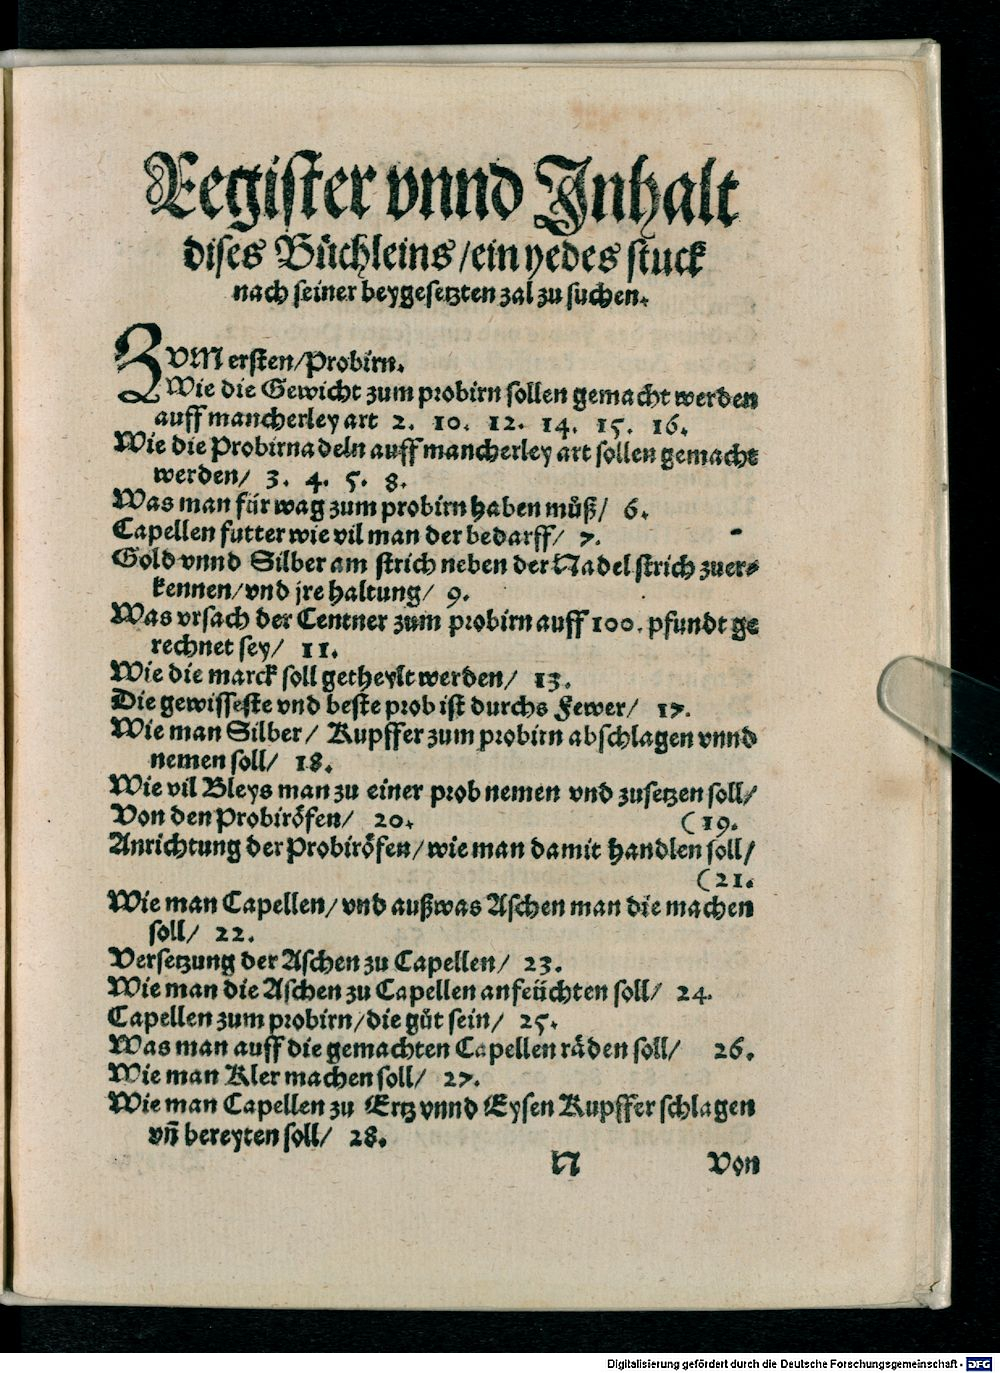 Register vnnd Inhalt
dises Büchleins/ein yedes stuck
nach seiner beygesetzten zal zu suchen.
ZVM ersten/Probirn.
Wie die Gewicht zum probirn sollen gemacht werden
auff mancherley art 2. 10. 12. 14. 15. 16.
Wie die Probirnadeln auff mancherley art sollen gemacht
werden/ 3. 4. 5. 8.
Was man für wag zum probirn haben můß/ 6.
Capellen futter wie vil man der bedarff/ 7.
Gold vnnd Silber am strich neben der Nadel strich zuer-
kennen/vnd jre haltung/ 9.
Was vrsach der Centner zum probirn auff 100. pfundt ge
rechnet sey/ 11.
Wie die marck soll getheylt werden/ 13.
Die gewisseste vnd beste prob ist durchs Fewer/ 17.
Wie man Silber/ Kupffer zum probirn abschlagen vnnd
nemen soll/ 18.
Wie vil Bleys man zu einer prob nemen vnd zusetzen soll/
Von den Probiröfen/ 20. (19.
Anrichtung der Probiröfen/wie man damit handlen soll/
(21.
Wie man Capellen/vnd außwas Aschen man die machen
soll/ 22.
Versetzung der Aschen zu Capellen/ 23.
Wie man die Aschen zu Capellen anfeüchten soll/ 24.
Capellen zum probirn/die gůt sein/ 25.
Was man auff die gemachten Capellen räden soll/ 26.
Wie man Kler machen soll/ 27.
Wie man Capellen zu Ertz vnnd Eysen Kupffer schlagen
vñ bereyten soll/ 28.
N Von
Digitalisierung gefördert durch die Deutsche Forschungsgemeinschaft - DFG